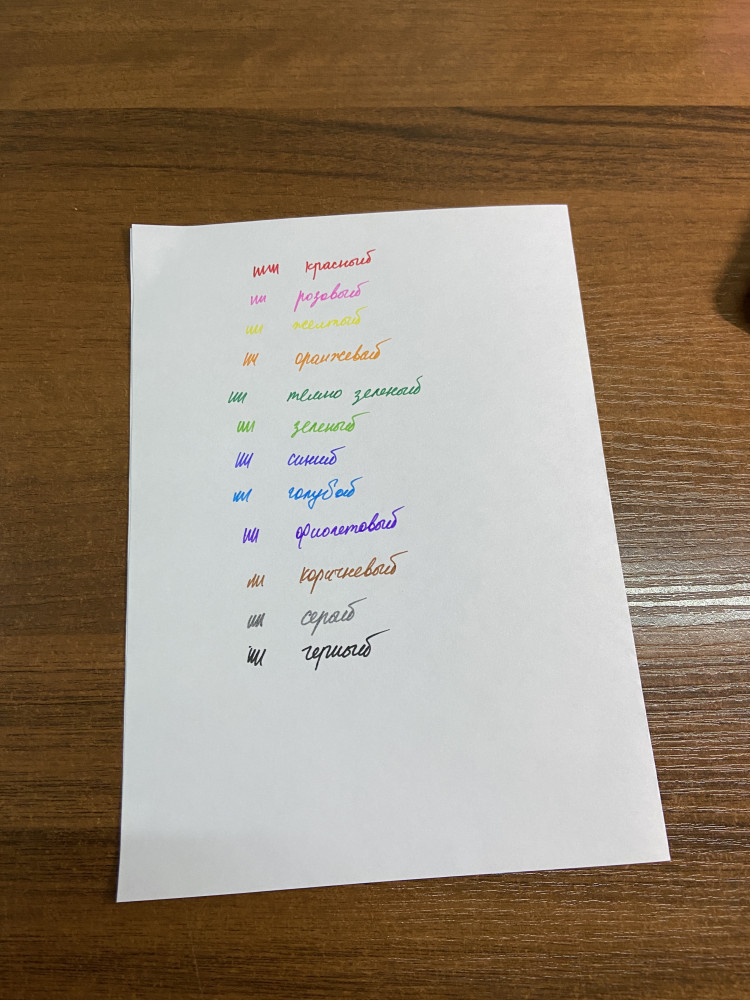 красный
розовый
желтый
оранжевый
темно зеленый
зеленый
синий
голубой
фиолетовый
коричневый
серый
черный